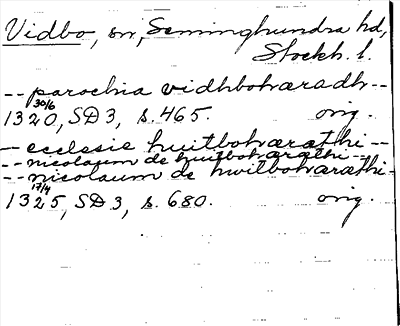 Vidbo, sn, Seminghundra hd,
Stockh. l.
-- parochia vidhbohæradh --
1320 30/6, SD 3, s. 465. orig.
-- ecclesie huitbohærathi --
-- nicolaum de huitbohærathi --
-- nicolaum de hwitbohærathi --
1325 17/4, SD 3, s. 680. orig.